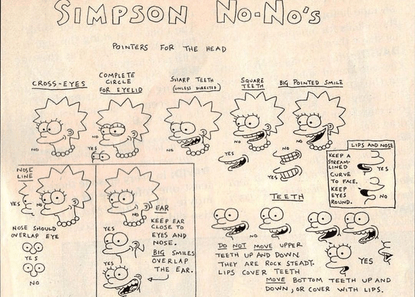 SIMPSON NO-NO'S
POINTERS FOR THE HEAD
CROSS-EYES
COMPLETE
CIRCLE
FOR EYELID
SHARP TEETH
(UNLESS DIRECTED)
SQUARE
TEETH
BIG POINTED SMILE
NO
NO
NO
NO
NO
YES
YES
YES
YES
LIPS AND NOSE
KEEP A
STREAM-
LINED
CURVE
TO FACE.
KEEP
EYES
ROUND.
YES
NO
NOSE
LINE
YES
NO
NOSE SHOULD
OVERLAP EYE
YES
NO
NO
YES
EAR
KEEP EAR
CLOSE TO
EYES AND
NOSE.
BIG SMILES
OVERLAP
THE EAR.
TEETH
NO
NO
YES
YES
DO NOT MOVE UPPER
TEETH UP AND DOWN.
THEY ARE ROCK STEADY.
LIPS COVER TEETH
YES
MOVE BOTTOM TEETH UP AND
DOWN, OR COVER WITH LIPS.